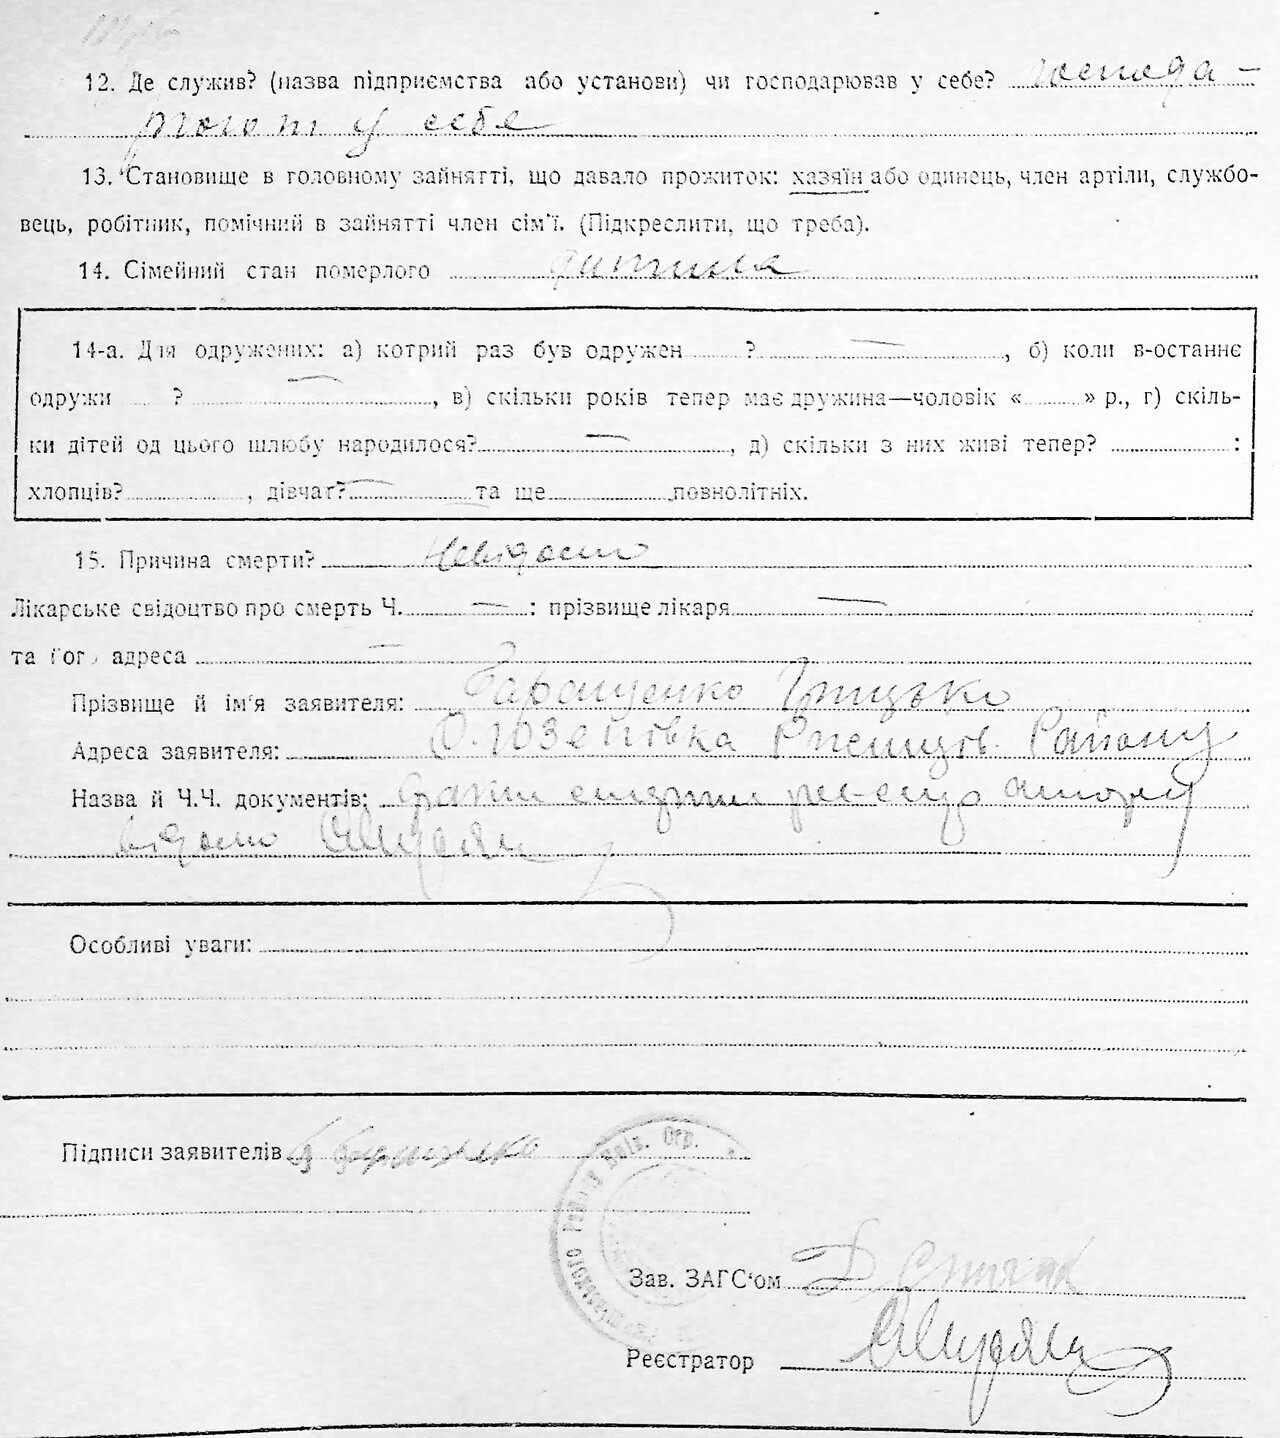 12. Де служив? (назва підприємства або установи) чи господарював у себе? господа-
рюют у себе
13. Становище в головному зайнятті, що давало прожиток: хазяїн або одинець, член артіли, службо-
вець, робітник, помічний в зайнятті член сім'ї. (Підкреслити, що треба).
14. Сімейний стан померлого дитина
14-а. Для одружених: а) котрий раз був одружен ? —, б) коли в-останнє
одружи ? —, в) скільки років тепер має дружина—чоловік « » р., г) скіль-
ки дітей од цього шлюбу народилося? —, д) скільки з них живі тепер? :
хлопців? , дівчат? — та ще повнолітніх.
15. Причина смерти? Невідомо
Лікарське свідоцтво про смерть Ч. — : прізвище лікаря —
та його адреса —
Прізвище й ім'я заявителя: Гаращенко Грицько
Адреса заявителя: Району
Назва й Ч.Ч. документів:
відомо
Особливі уваги:
Підписи заявителів
Району Вінн. Окр.
Зав. ЗАГС'ом
Реєстратор